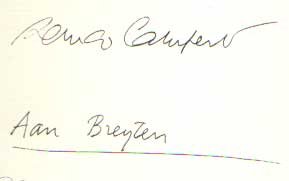 Remco Campert
Aan Breyten